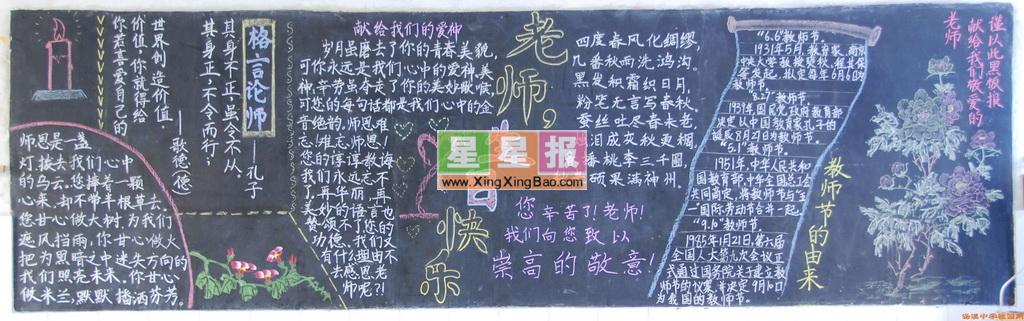 谨以此黑板报
献给我们敬爱的
老师
"6.6"教师节。
1931年5月,教育家、南京
中央大学教授
等发起,拟定每年6月6日
教师节。
"8.27"教师节。
1939年国民党政府教育部
决定以中国教育家孔子的
诞辰8月27日为教师节。
"5.1"教师节。
1951年,中华人民共和
国教育部、中华全国总工会
共同商定,将教师节与"五
一"国际劳动节合并一起。
"9.10"教师节。
1985年1月21日,第六届
全国人大第九次会议正
式通过国务院关于建立教
师节的议案,并决定9月10日
为我国的教师节。
教师节的由来
老师,
节日
快乐
四度春风化绸缪,
几番秋雨洗鸿沟。
黑发积霜织日月,
粉笔无言写春秋。
蚕丝吐尽春未老,
烛泪成灰秋更稠。
春播桃李三千圃,
秋来硕果满神州。
您辛苦了!老师!
我们向您致以
崇高的敬意!
献给我们的爱神
岁月虽磨去了你的青春美貌,
可你永远是我们心中的爱神,美
神,辛劳虽夺走了你的美妙歌喉,
可您的每句话都是我们心中的金
音绝韵。师恩难
忘!难忘师恩!
您的谆谆教诲
我们永远忘不
了,再华丽、再
美妙的语言也
赞颂不了您的
功德,我们又
有什么理由不
去感恩老
师呢?!
格言论师
其身不正,虽令不从,
其身正,不令而行;
——孔子
世界创造价值,
价值,你就得给
你若喜爱自己的
——歌德(德)
师恩是一盏
灯,拨去我们心中
的乌云。您捧着一颗
心来,却不带半根草去。
您甘心做大树,为我们
遮风挡雨,你甘心做火
把为黑暗之中迷失方向的
我们照亮未来。你甘心
做米兰,默默播洒芬芳。
星星报
www.XingXingBao.com